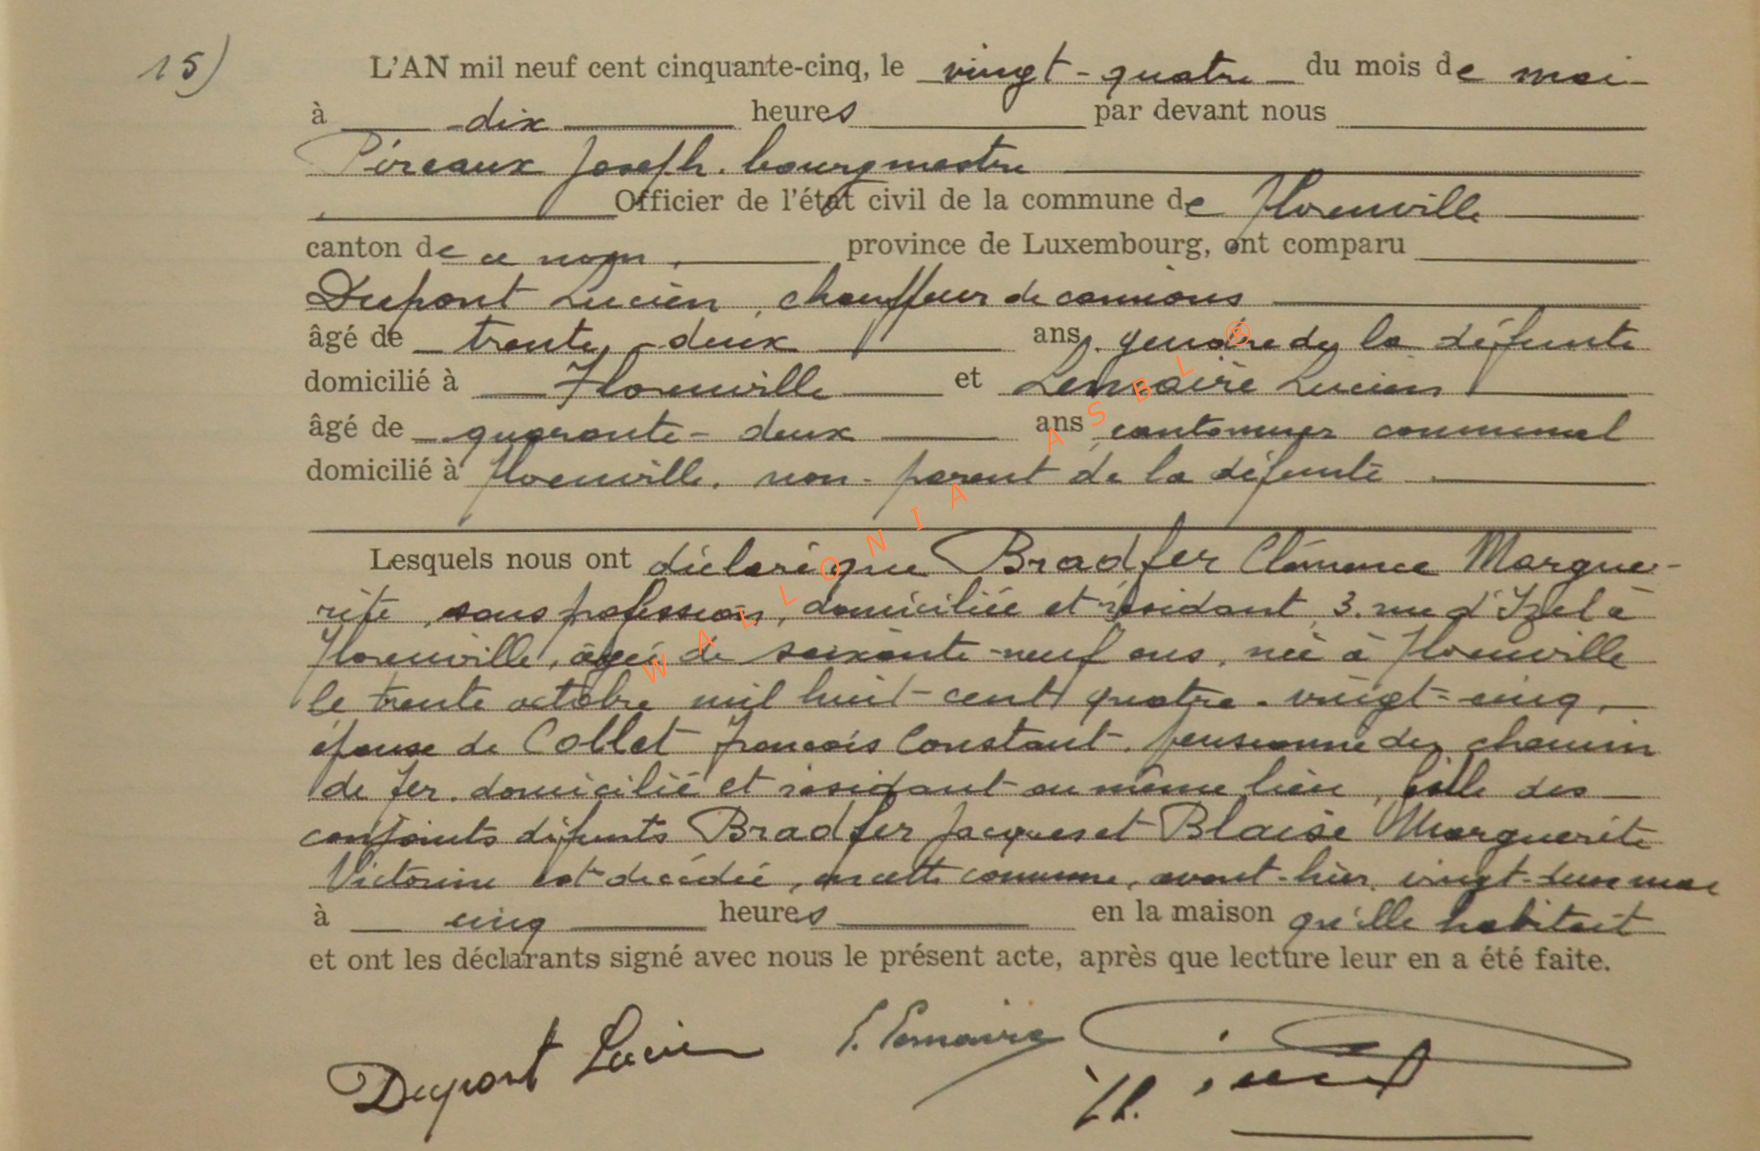 15)
L'AN mil neuf cent cinquante-cinq, le vingt-quatre du mois de mai
à dix heures par devant nous
Pireaux Joseph. bourgmestre
Officier de l'état civil de la commune de Florenville
canton de ce nom, province de Luxembourg, ont comparu
Dupont Lucien, chauffeur de camions
âgé de trente-deux ans, gendre de la défunte
domicilié à Florenville et Lemaire Lucien
âgé de quarante-deux ans cantonnier communal
domicilié à Florenville. non-parent de la défunte.
Lesquels nous ont déclaré que Bradfer Clémence Margue-
rite, sans profession, domiciliée et résidant 3. rue d'Izel à
Florenville, âgée de soixante-neuf ans, née à Florenville
le trente octobre mil huit-cent quatre-vingt-cinq,
épouse de Collet François Constant. pensionné des chemin
de fer. domicilié et résidant au même lieu, fille des
conjoints défunts Bradfer Jacques et Blaise Marguerite
Victorine est décédée, en cette commune, avant-hier vingt-deux mai
à cinq heures en la maison qu'elle habitait
et ont les déclarants signé avec nous le présent acte, après que lecture leur en a été faite.
Dupont Lucien L. Lemaire
WALLONIA ASBL ®